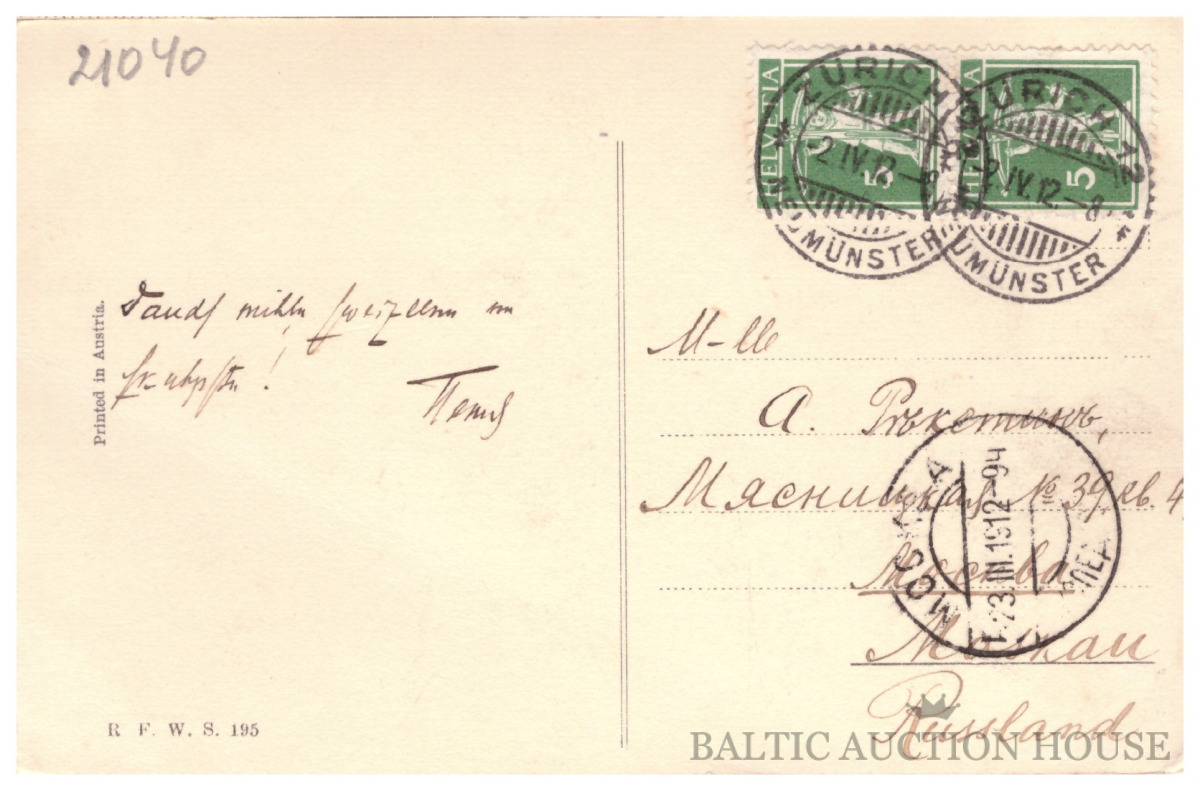 21040
HELVETIA 5
HELVETIA 5
ZÜRICH 12
-2.IV.12.-8
NEUMÜNSTER
ZÜRICH 12
-2.IV.12.-8
NEUMÜNSTER
Daudz mihļu
Printed in Austria.
R. F. W. S. 195
M-lle
А.
Мясницкая № 39, кв. 4
Москва
Moskau
Russland
МОСКВА
23.III.1912-9Ч
BALTIC AUCTION HOUSE